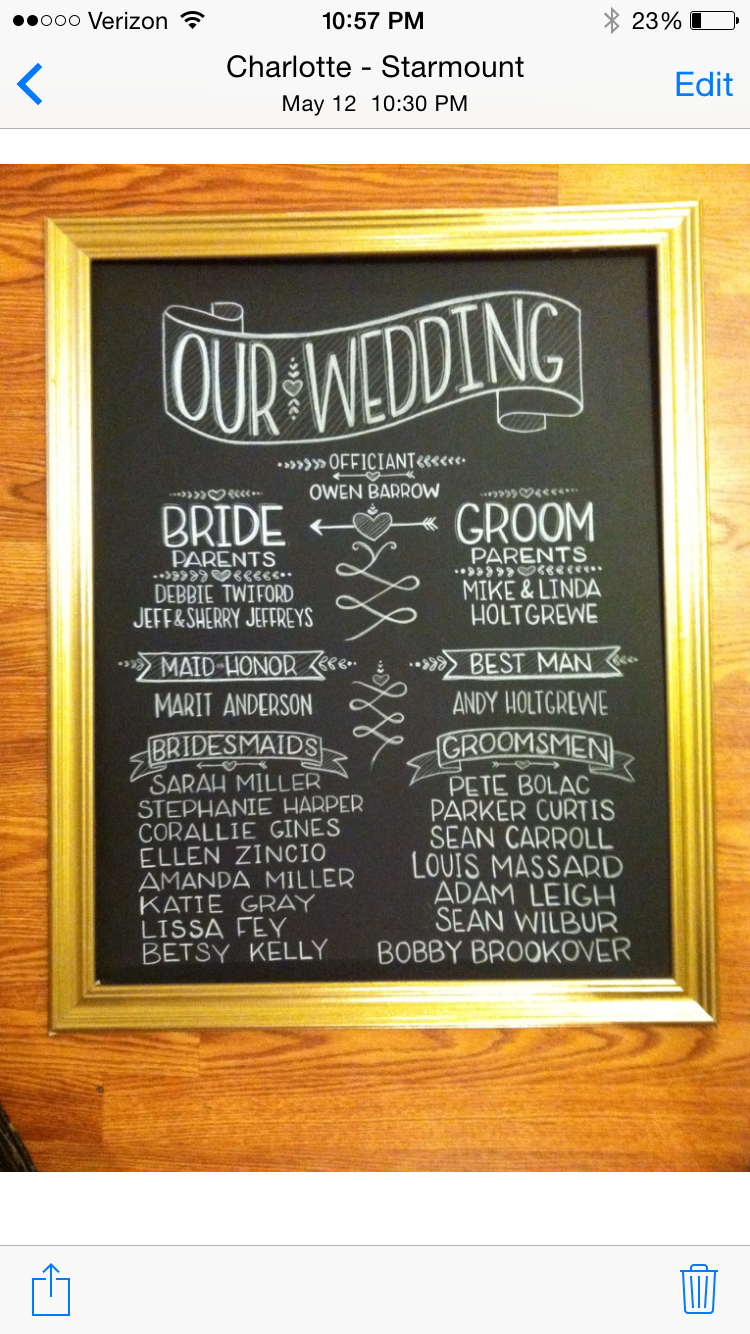 Verizon 10:57 PM 23%
Charlotte - Starmount
May 12 10:30 PM
Edit
OUR WEDDING
OFFICIANT
OWEN BARROW
BRIDE
PARENTS
DEBBIE TWIFORD
JEFF & SHERRY JEFFREYS
GROOM
PARENTS
MIKE & LINDA
HOLTGREWE
MAID HONOR
MARIT ANDERSON
BEST MAN
ANDY HOLTGREWE
BRIDESMAIDS
SARAH MILLER
STEPHANIE HARPER
CORALLIE GINES
ELLEN ZINCIO
AMANDA MILLER
KATIE GRAY
LISSA FEY
BETSY KELLY
GROOMSMEN
PETE BOLAC
PARKER CURTIS
SEAN CARROLL
LOUIS MASSARD
ADAM LEIGH
SEAN WILBUR
BOBBY BROOKOVER